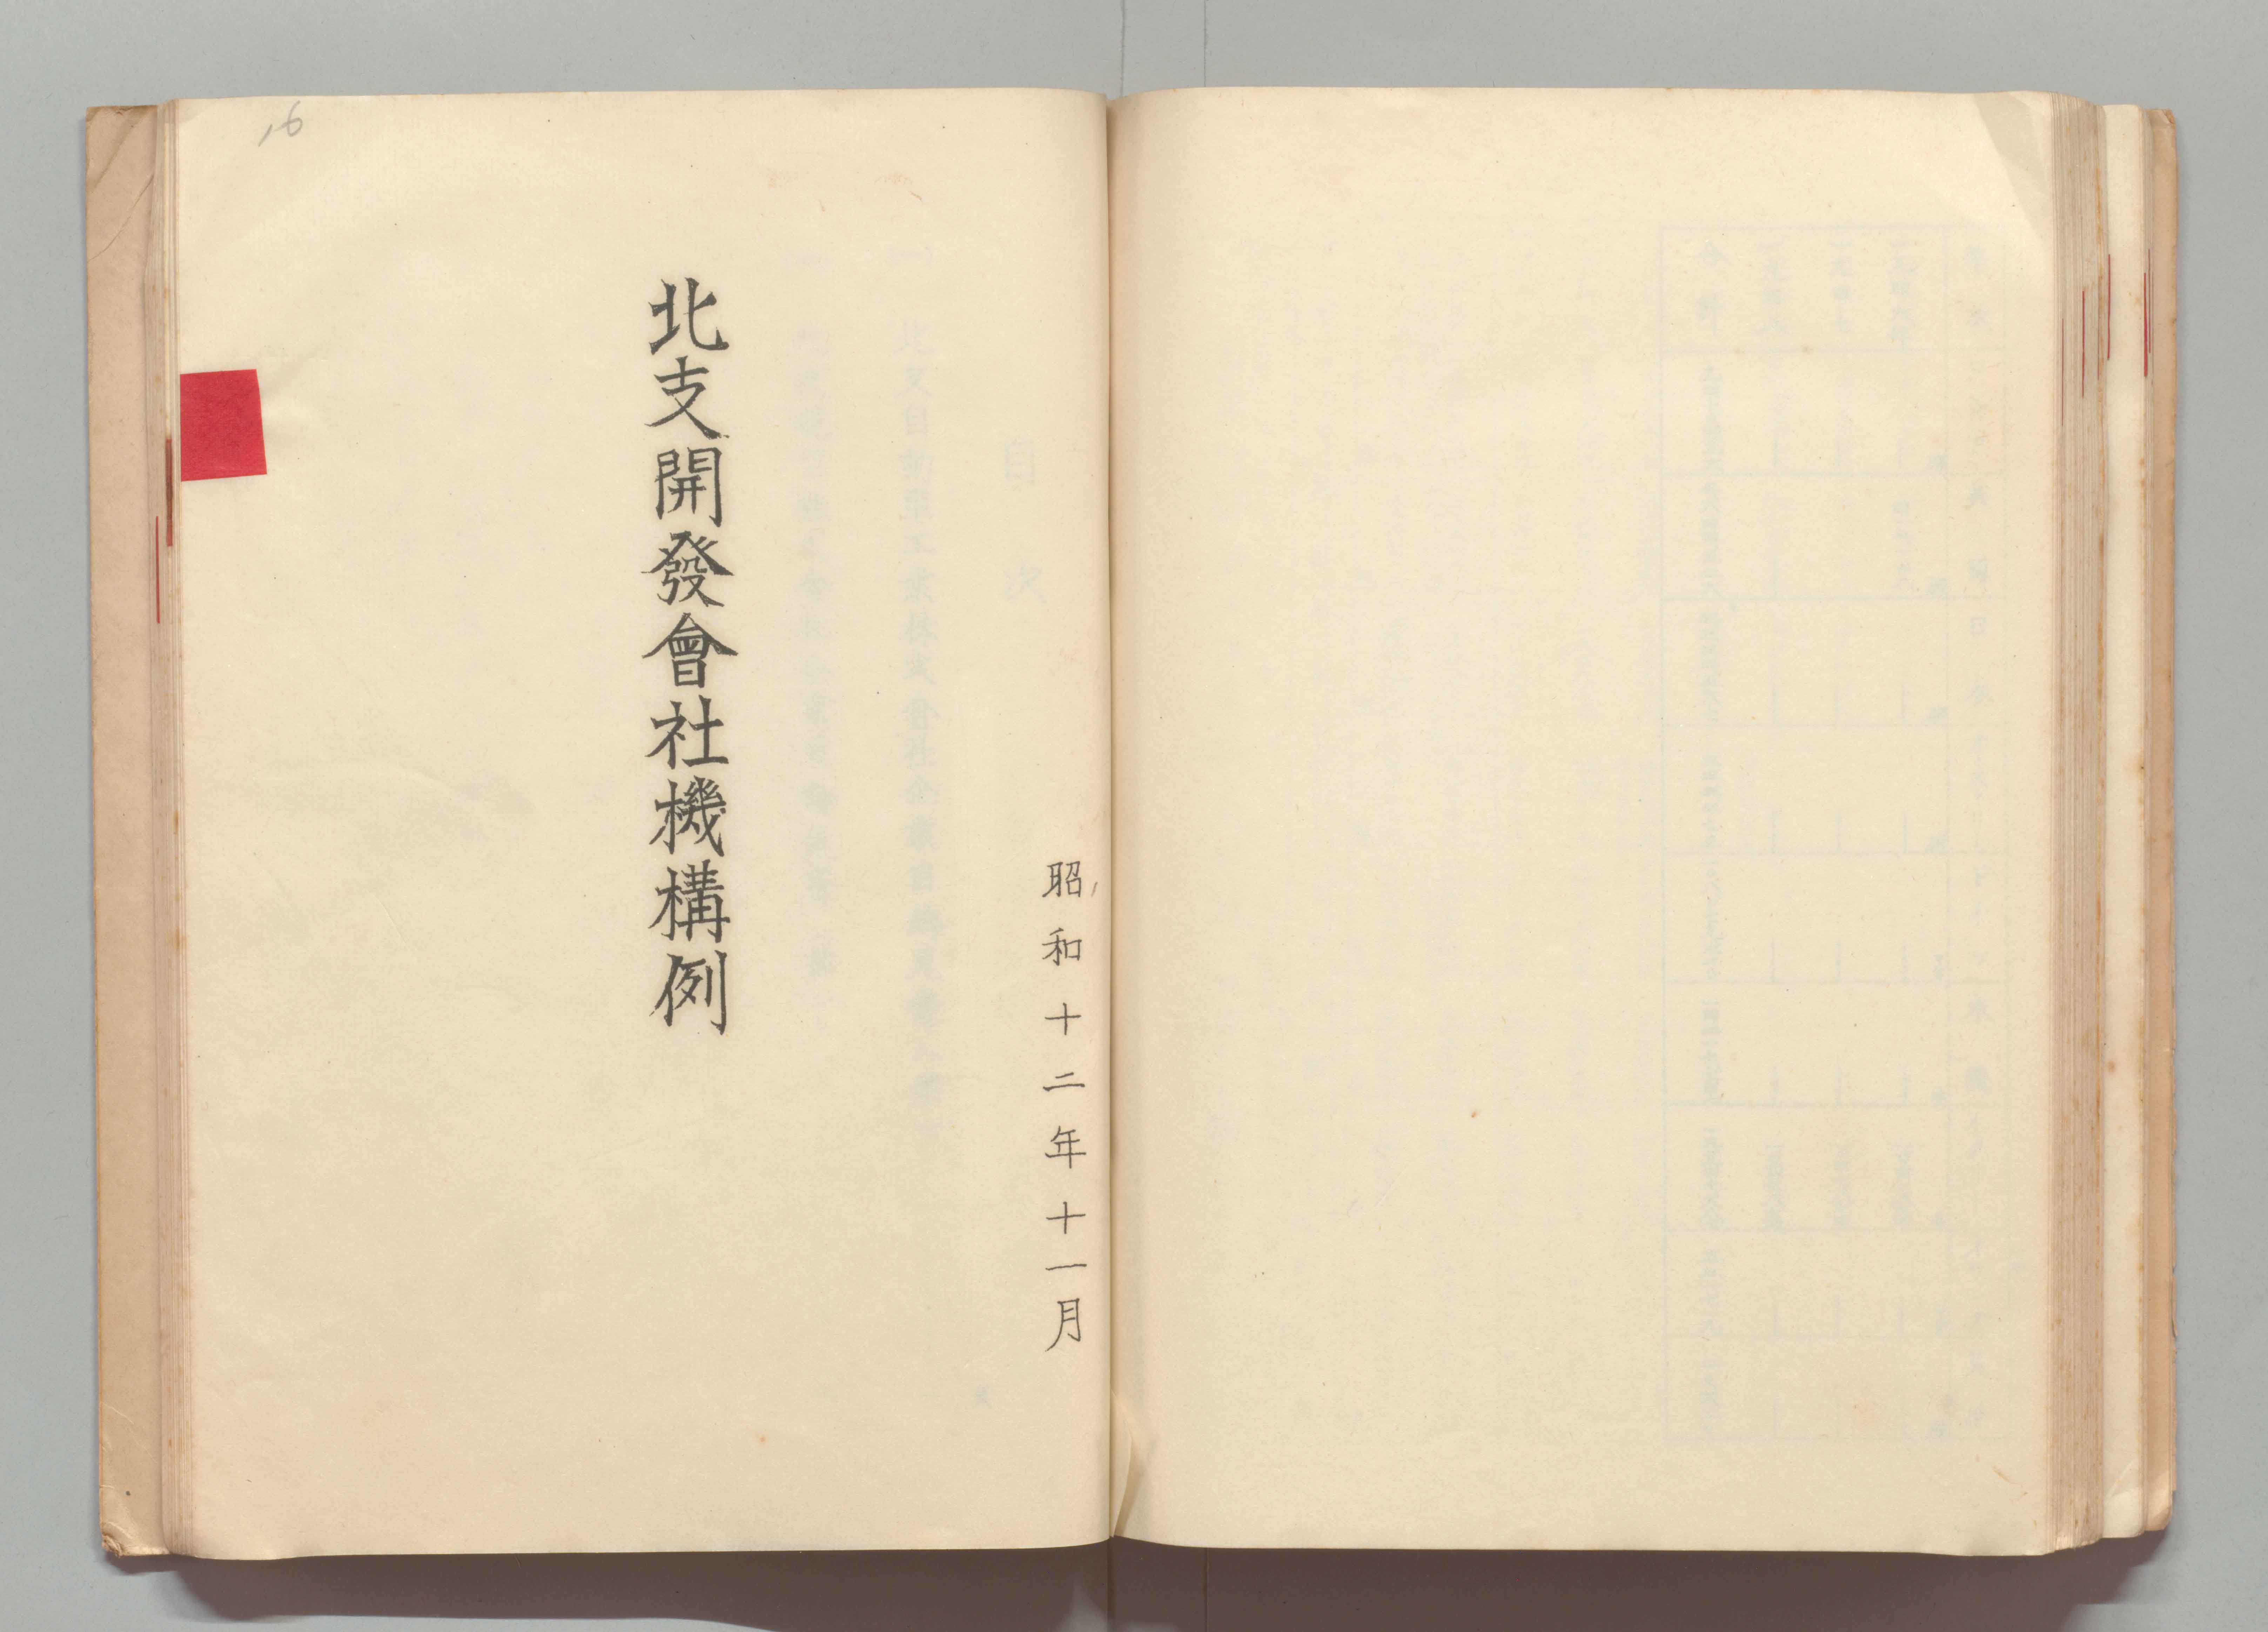 昭和十二年十一月
北支開發會社機構例
16